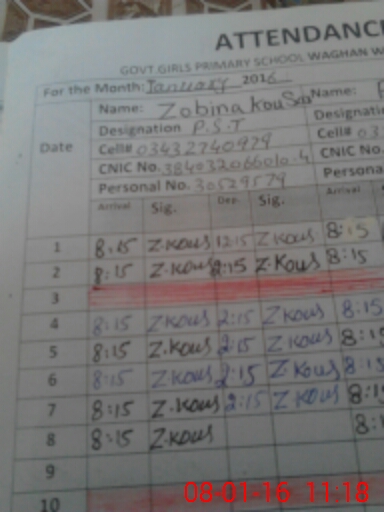 ATTENDANC
GOVT. GIRLS PRIMARY SCHOOL WAGHAN W
For the Month: January 2016
Name: Zobina Kous Name:
Designation P.S.T Designati
Cell# 03432740979 Cell# 03
Date CNIC No. CNIC No.
Personal No. 30529579 Persona
Arrival Sig. Dep. Sig. Arrival
1 8:15 Z.Kous 12:15 Z Kous 8:15
2 8:15 Z.Kous 2:15 Z.Kous 8:15
3
4 8:15 Z Kous 2:15 Z Kous 8:15
5 8:15 Z.Kous 2:15 Z Kous 8:15
6 8:15 Z Kous 2:15 Z Kous 8:15
7 8:15 Z.Kous 2:15 Z Kous 8:1
8 8:15 Z.Kous 8:
9
10
08-01-16 11:18